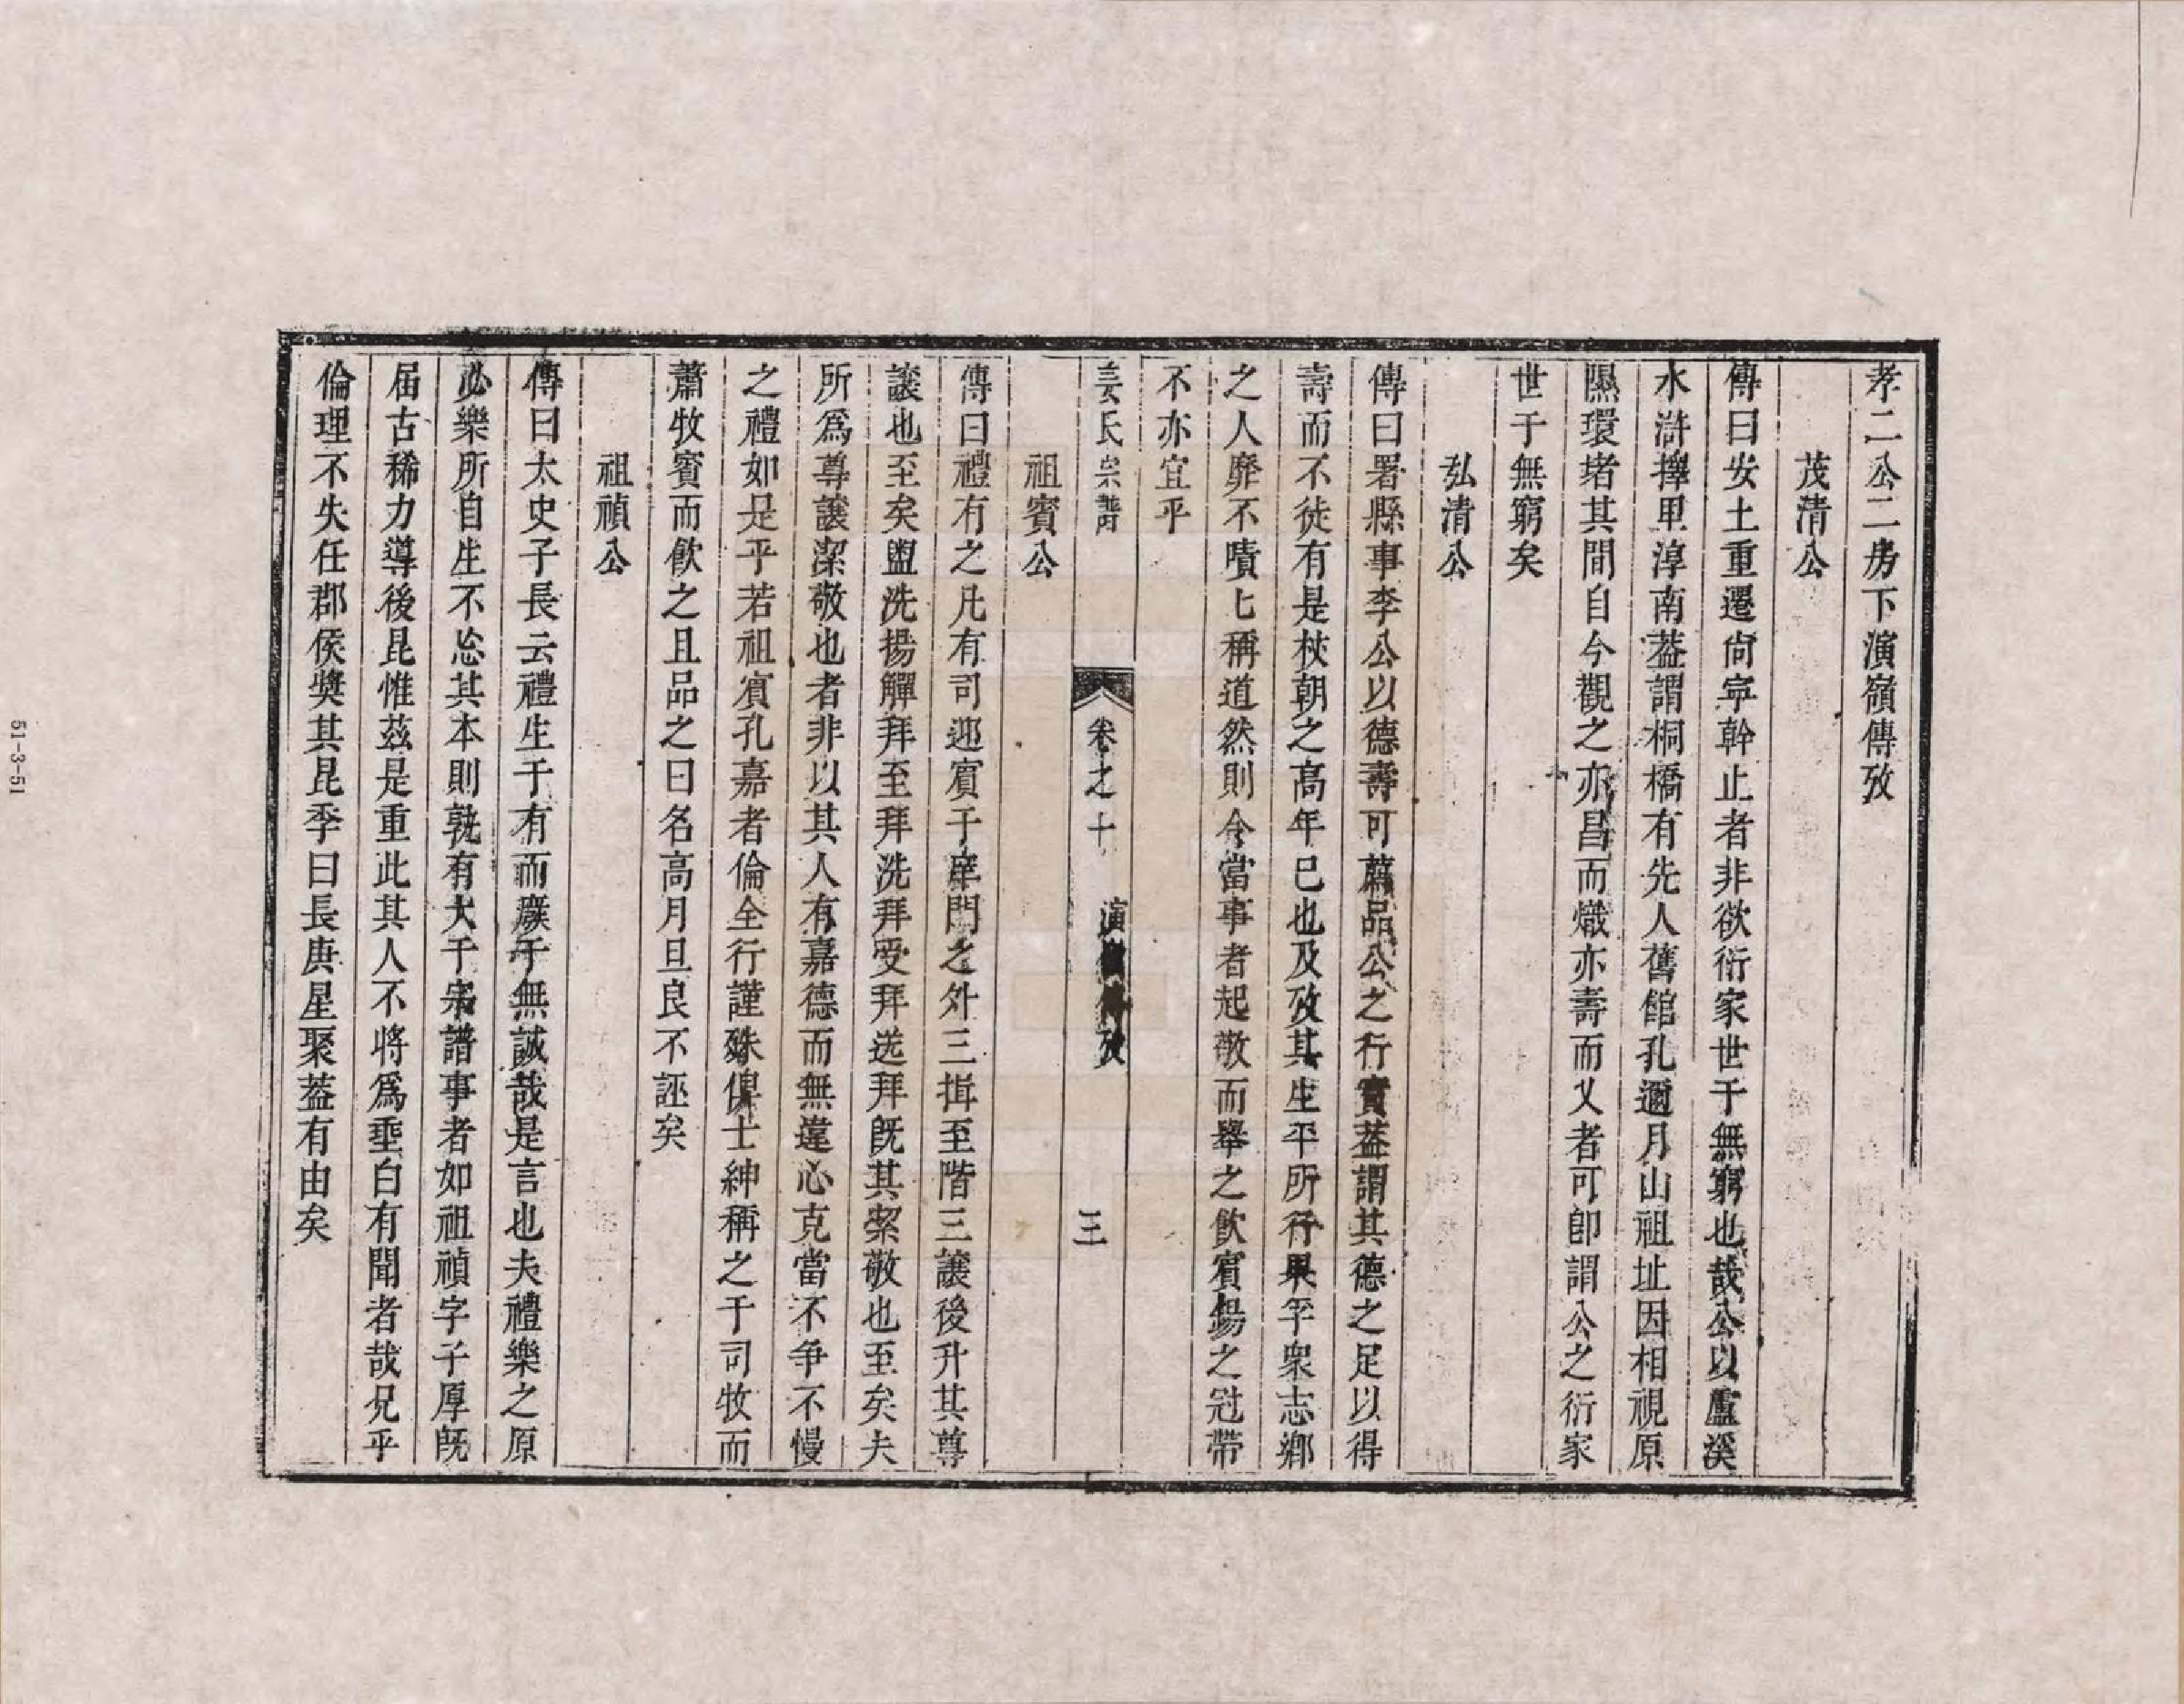 孝二公二房下演嶺傳攷
茂清公
傳曰安土重遷尙寧幹止者非欲衍家世于無窮也哉公以盧溪
水滸擇里淳南葢謂桐橋有先人舊館孔邇月山祖址因相視原
隰環堵其間自今觀之亦昌而熾亦壽而乂者可卽謂公之衍家
世于無窮矣
弘清公
傳曰署縣事李公以德壽可薦品公之行實葢謂其德之足以得
壽而不徒有是杖朝之高年已也及攷其生平所行果孚衆志鄉
之人靡不嘖匕稱道然則令當事者起敬而舉之飮賓錫之冠帶
不亦宜乎
姜氏宗譜 卷之十 演嶺傳攷 三
祖賓公
傳曰禮有之凡有司迎賓于庠門之外三揖至階三讓後升其尊
讓也至矣盥洗揚觶拜至拜洗拜受拜送拜旣其絜敬也至矣夫
所爲尊讓潔敬也者非以其人有嘉德而無違心克當不争不慢
之禮如是乎若祖賓孔嘉者倫全行謹殊俾士紳稱之于司牧而
蕭牧賓而飮之且品之曰名高月旦良不誣矣
祖禎公
傳曰太史子長云禮生于有而廢于無誠哉是言也夫禮樂之原
必樂所自生不忩其本則孰有大于宗譜事者如祖禎字子厚旣
届古稀力導後昆惟茲是重此其人不將爲垂白有聞者哉況乎
倫理不失任郡侯奬其昆季曰長庚星聚葢有由矣
51-3-51